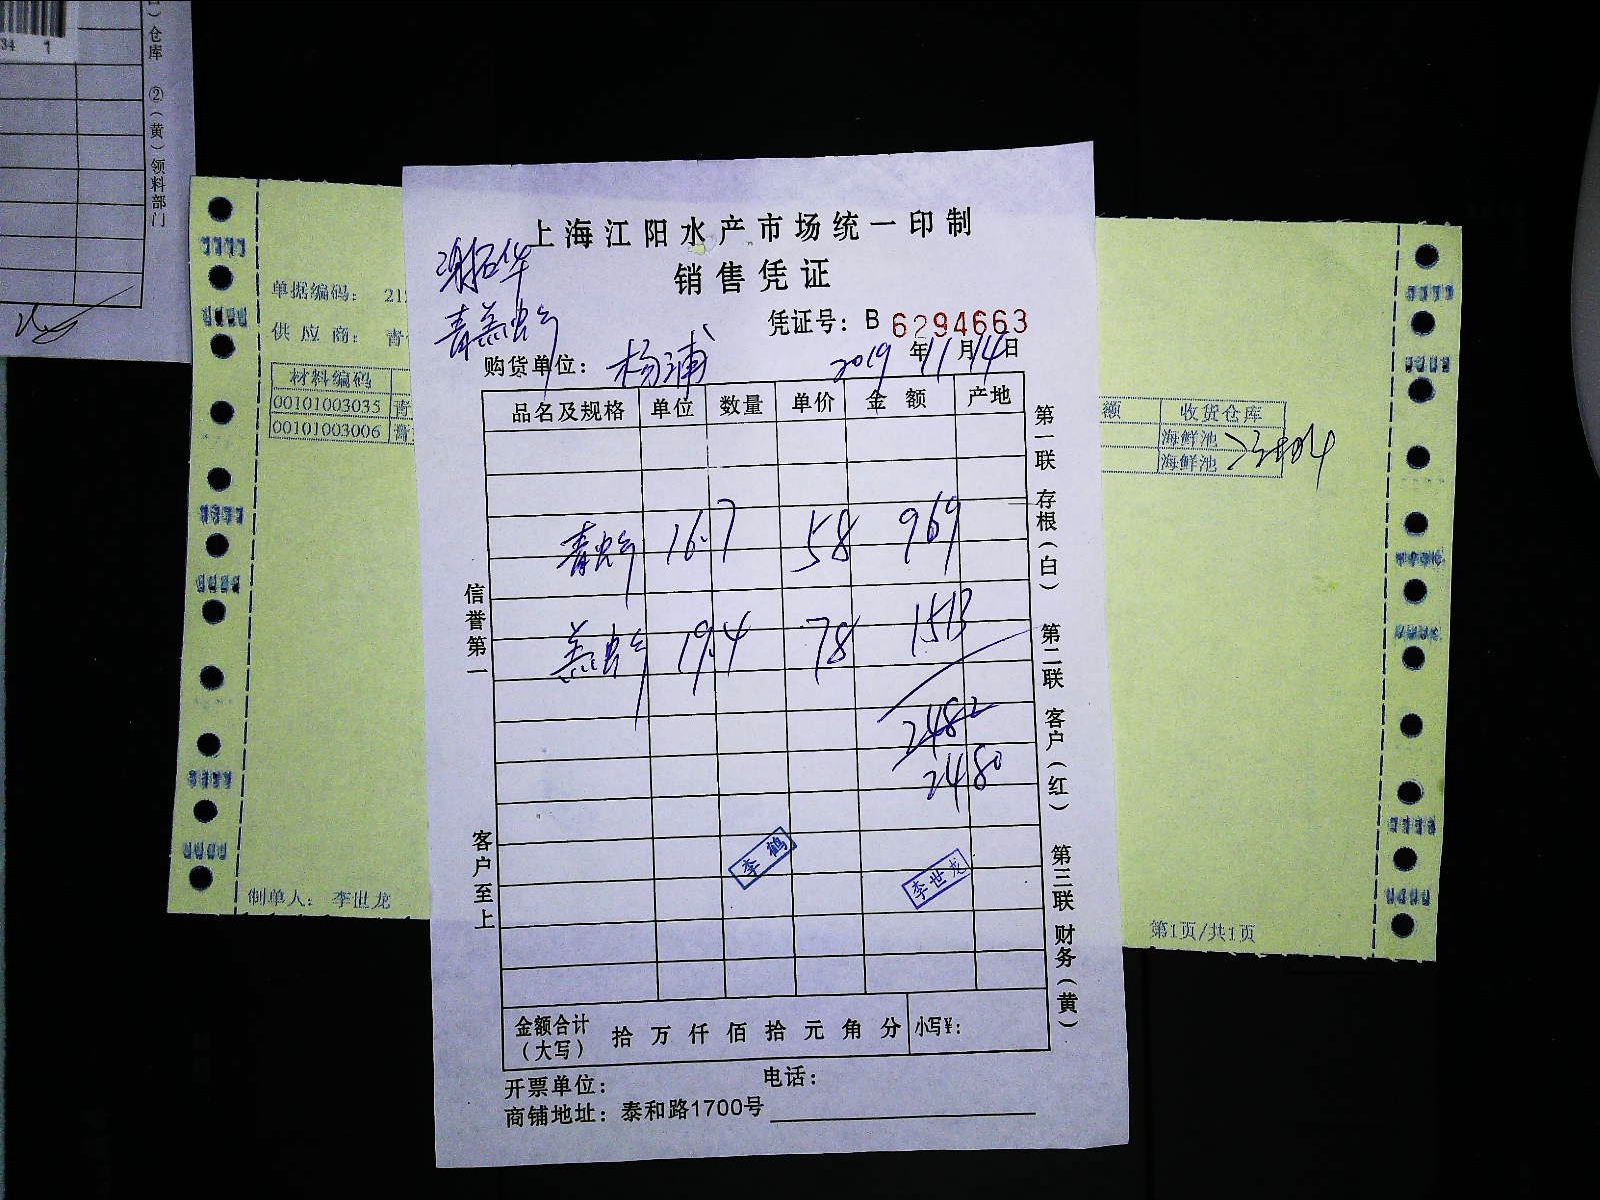 34 1
仓库 ②(黄)领料部门
上海江阳水产市场统一印制
销售凭证
凭证号: B 6294663
购货单位: 杨浦 2019年11月14日
品名及规格 单位 数量 单价 金额 产地
青 16.7 58 969
19.4 78 1513
2482
2480
李鹤
李世龙
金额合计(大写) 拾 万 仟 佰 拾 元 角 分 小写¥:
开票单位: 电话:
商铺地址: 泰和路1700号
信誉第一 客户至上
第一联 存根(白) 第二联 客户(红) 第三联 财务(黄)
单据编码: 21
供应商: 青
材料编码
00101003035 青
00101003006
额 收货仓库
海鲜池
海鲜池
制单人: 李世龙
第1页/共1页